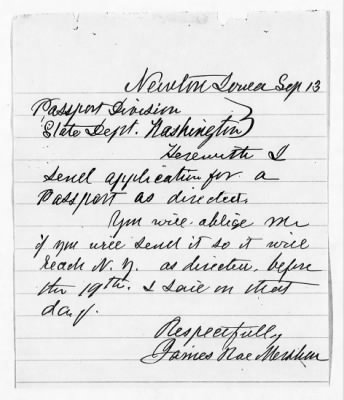 Newton Iowa Sep 13
Passport Division
State Dept. Washington
Herewith I
send application for a
Passport as directed.
You will oblige me
if you will send it so it will
reach N. Y. as directed, before
the 19th. I sail on that
day.
Respectfully
James Rae